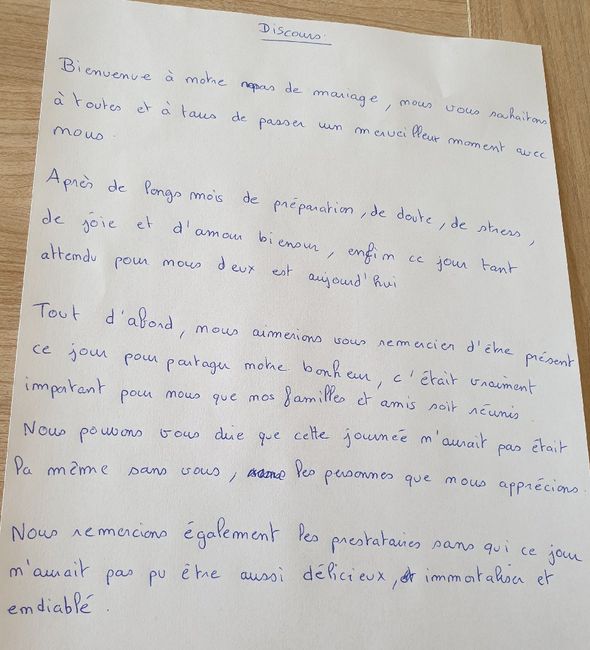 Discours.
Bienvenue à notre repas de mariage, nous vous souhaitons
à toutes et à tous de passer un merveilleur moment avec
nous.
Après de longs mois de préparation, de doute, de stress,
de joie et d'amour biensur, enfin ce jour tant
attendu pour nous deux est aujourd'hui
Tout d'abord, nous aimerions vous remercier d'être présent
ce jour pour partager notre bonheur, c'était vraiment
important pour nous que nos familles et amis soit réunis.
Nous pouvons vous dire que cette journée n'aurait pas était
la même sans vous, les personnes que nous apprécions.
Nous remercions également les prestataires sans qui ce jour
n'aurait pas pu être aussi délicieux, immortaliser et
endiablé.